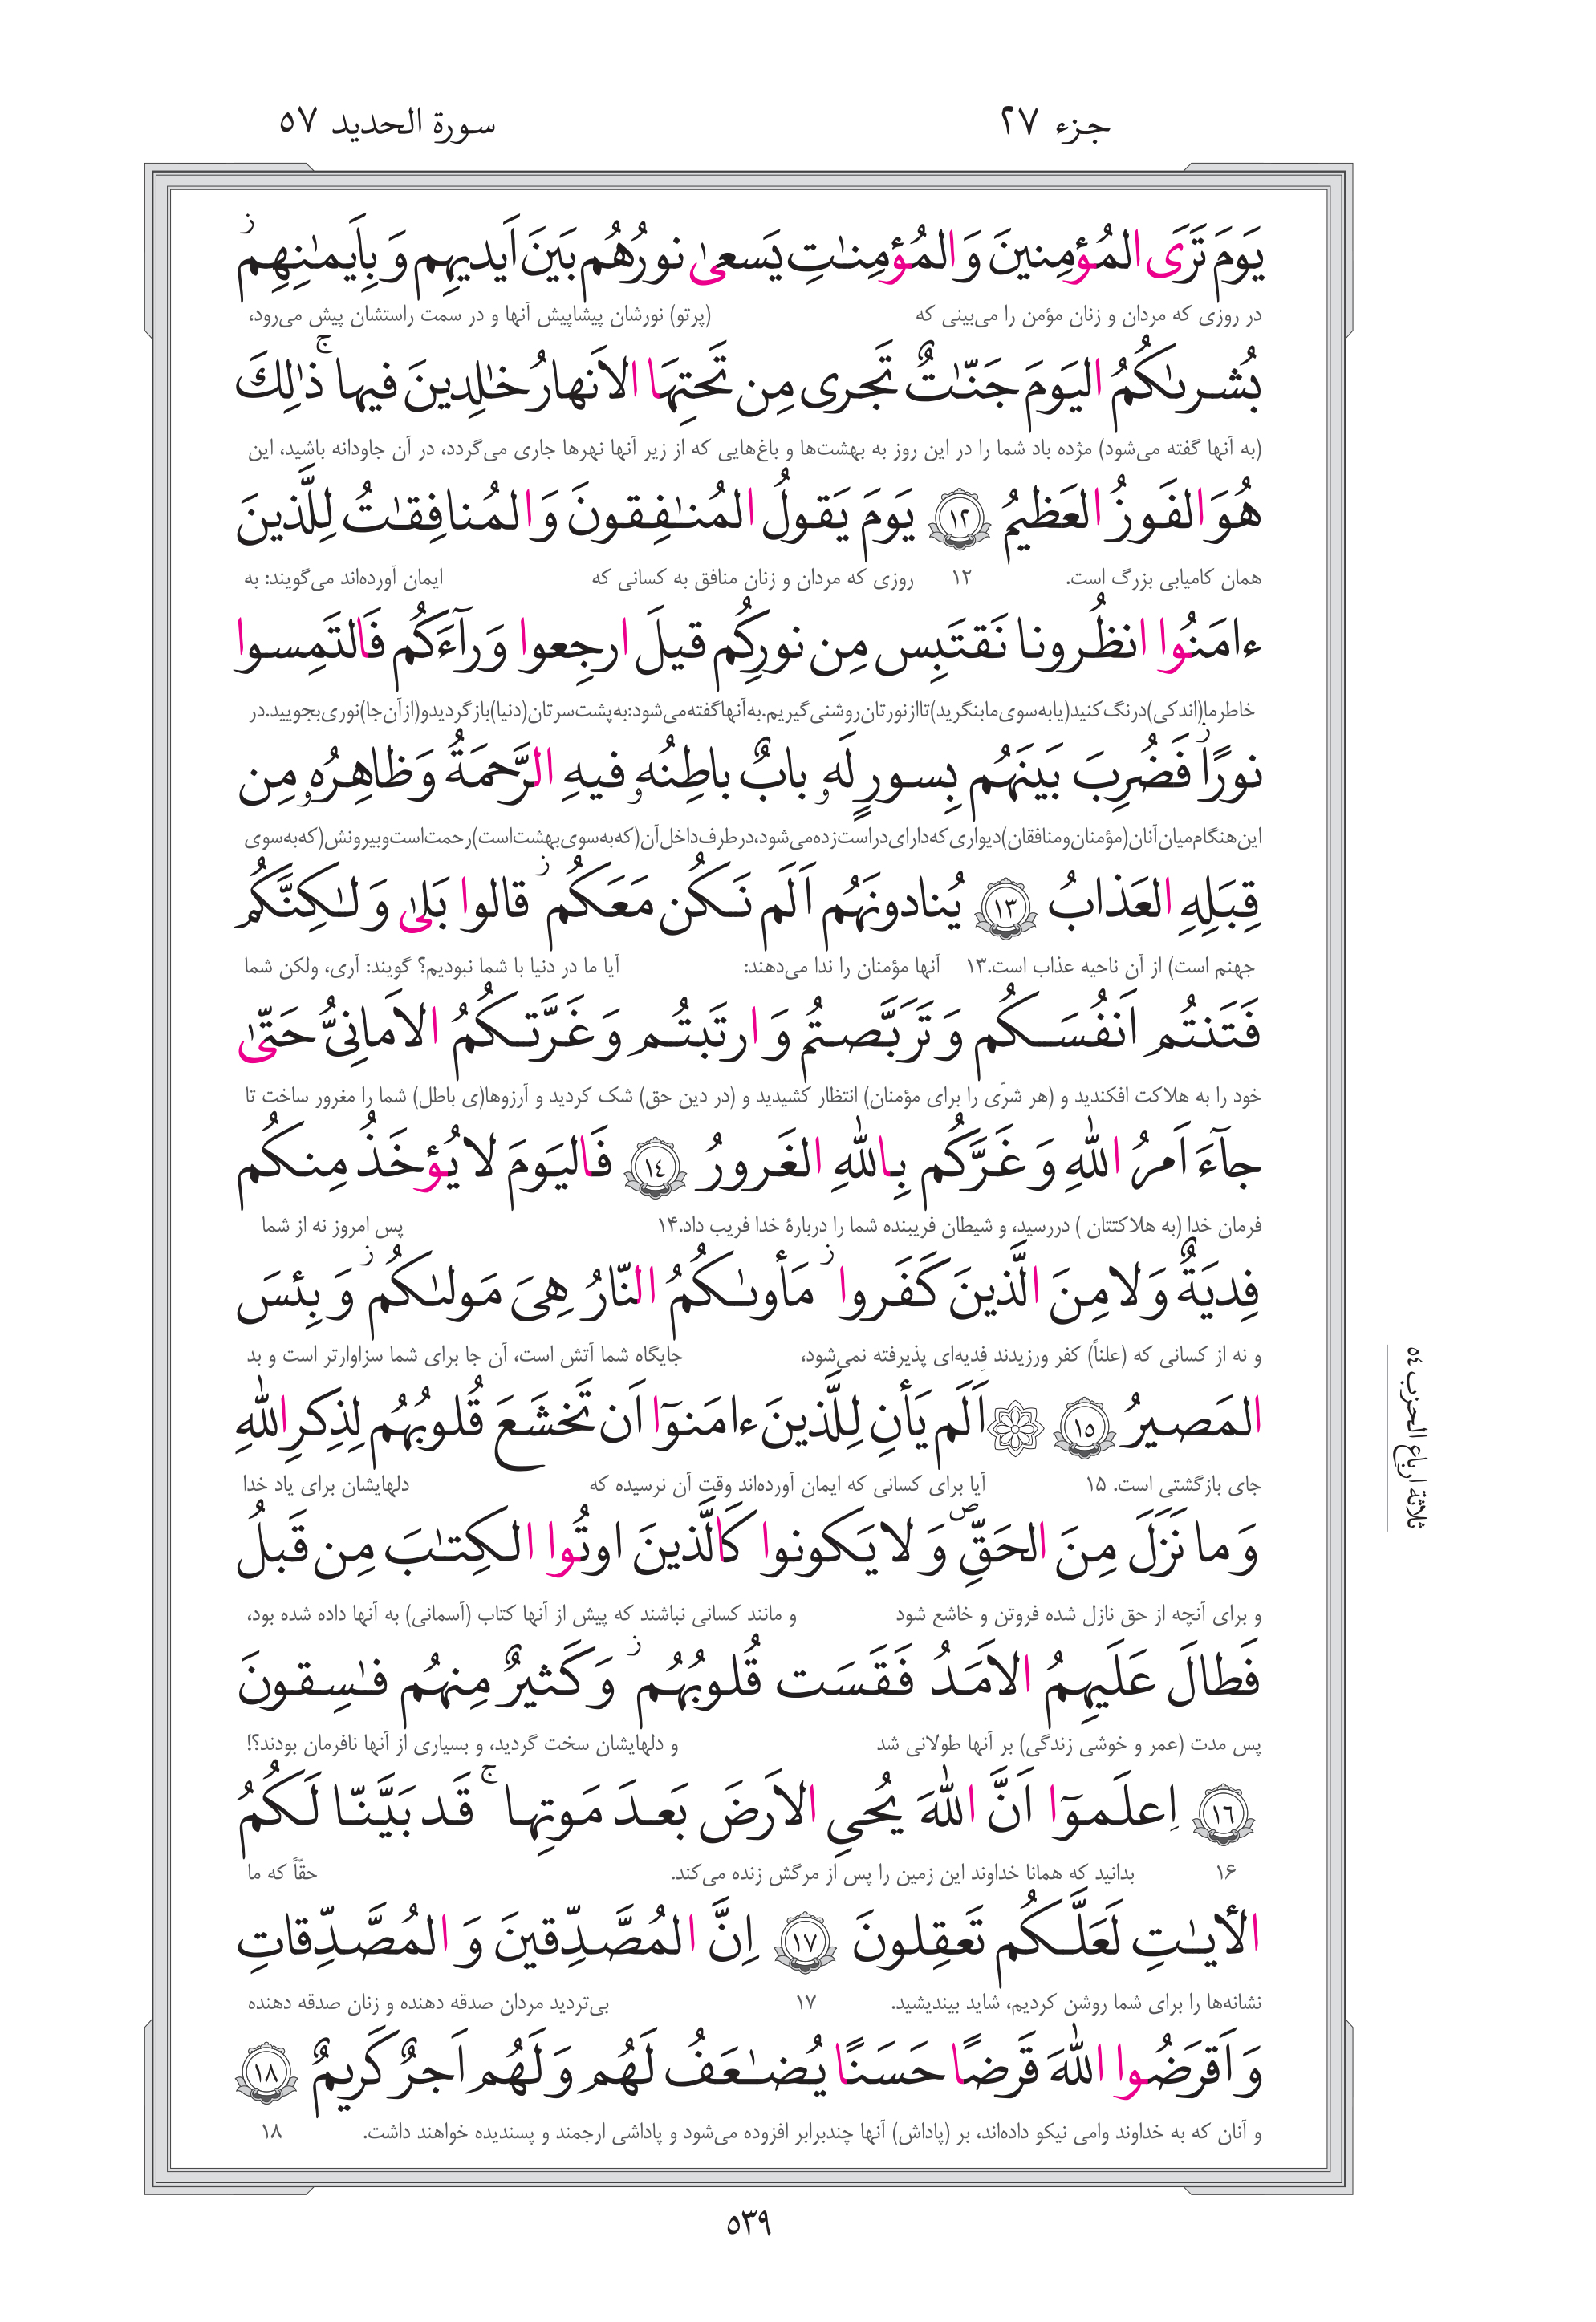 جزء ٢٧
سورة الحديد ٥٧
يَومَ تَرَى المُؤمِنينَ وَ المُؤمِنـٰتِ يَسعىٰ نورُهُم بَينَ اَيديهِم وَ بِاَيمـٰنِهِم ۖز
در روزی که مردان و زنان مؤمن را می‌بینی که (پرتو) نورشان پیشاپیش آنها و در سمت راستشان پیش می‌رود،
بُشرىٰكُمُ اليَومَ جَنّـٰتٌ تَجرى مِن تَحتِهَا الاَنهارُ خـٰلِدينَ فيها ۚ ذٰلِكَ
(به آنها گفته می‌شود) مژده باد شما را در این روز به بهشت‌ها و باغ‌هایی که از زیر آنها نهرها جاری می‌گردد، در آن جاودانه باشید، این
هُوَ الفَوزُ العَظيمُ ١٢ يَومَ يَقولُ المُنـٰفِقونَ وَ المُنافِقـٰتُ لِلَّذينَ
همان کامیابی بزرگ است. ۱۲ روزی که مردان و زنان منافق به کسانی که ایمان آورده‌اند می‌گویند: به
ءامَنُوا انظُرونا نَقتَبِس مِن نورِكُم قيلَ ارجِعوا وَرآءَكُم فَالتَمِسوا
خاطر ما (اندکی) درنگ کنید (یا به سوی ما بنگرید) تا از نورتان روشنی گیریم. به آنها گفته می‌شود: به پشت سرتان (دنیا) باز گردید و (از آن جا) نوری بجویید. در
نورًا ز فَضُرِبَ بَينَهُم بِسورٍ لَهو بابٌ باطِنُهو فيهِ الرَّحمَةُ وَ ظاهِرُهو مِن
این هنگام میان آنان (مؤمنان و منافقان) دیواری که دارای در است زده می‌شود، در طرف داخل آن (که به سوی بهشت است) رحمت است و بیرونش (که به سوی
قِبَلِهِ العَذابُ ١٣ يُنادونَهُم اَلَم نَكُن مَعَكُم ز قالوا بَلىٰ وَ لـٰكِنَّكُم
جهنم است) از آن ناحیه عذاب است.۱۳ آنها مؤمنان را ندا می‌دهند: آیا ما در دنیا با شما نبودیم؟ گویند: آری، ولکن شما
فَتَنتُم اَنفُسَكُم وَ تَرَبَّصتُم وَ ارتَبتُم وَ غَرَّتكُمُ الاَمانِىُّ حَتّىٰ
خود را به هلاکت افکندید و (هر شرّی را برای مؤمنان) انتظار کشیدید و (در دین حق) شک کردید و آرزوها(ی باطل) شما را مغرور ساخت تا
جآءَ اَمرُ اللّٰهِ وَ غَرَّكُم بِاللّٰهِ الغَرورُ ١٤ فَاليَومَ لا يُؤخَذُ مِنكُم
فرمان خدا (به هلاکتتان ) دررسید، و شیطان فریبنده شما را دربارهٔ خدا فریب داد.۱۴ پس امروز نه از شما
فِديَةٌ وَ لا مِنَ الَّذينَ كَفَروا ز مَأوىٰكُمُ النّارُ هِىَ مَولىٰكُم ز وَ بِئسَ
و نه از کسانی که (علناً) کفر ورزیدند فِدیه‌ای پذیرفته نمی‌شود، جایگاه شما آتش است، آن جا برای شما سزاوارتر است و بد
المَصيرُ ١٥ اَلَم يَأنِ لِلَّذينَ ءامَنوٓا اَن تَخشَعَ قُلوبُهُم لِذِكرِ اللّٰهِ
جای بازگشتی است. ۱۵ آیا برای کسانی که ایمان آورده‌اند وقت آن نرسیده که دلهایشان برای یاد خدا
وَ ما نَزَلَ مِنَ الحَقِّ ص وَ لا يَكونوا كَالَّذينَ اوتُوا الكِتـٰبَ مِن قَبلُ
و برای آنچه از حق نازل شده فروتن و خاشع شود و مانند کسانی نباشند که پیش از آنها کتاب (آسمانی) به آنها داده شده بود،
فَطالَ عَلَيهِمُ الاَمَدُ فَقَسَت قُلوبُهُم ز وَ كَثيرٌ مِنهُم فـٰسِقونَ
پس مدت (عمر و خوشی زندگی) بر آنها طولانی شد و دلهایشان سخت گردید، و بسیاری از آنها نافرمان بودند؟!
١٦ اِعلَموٓا اَنَّ اللّٰهَ يُحيِى الاَرضَ بَعدَ مَوتِها ۚ قَد بَيَّنّا لَكُمُ
۱۶ بدانید که همانا خداوند این زمین را پس از مرگش زنده می‌کند. حقّاً که ما
الأيـٰتِ لَعَلَّكُم تَعقِلونَ ١٧ اِنَّ المُصَّدِّقينَ وَ المُصَّدِّقاتِ
نشانه‌ها را برای شما روشن کردیم، شاید بیندیشید. ۱۷ بی‌تردید مردان صدقه دهنده و زنان صدقه دهنده
وَ اَقرَضُوا اللّٰهَ قَرضًا حَسَنًا يُضـٰعَفُ لَهُم وَ لَهُم اَجرٌ كَريمٌ ١٨
و آنان که به خداوند وامی نیکو داده‌اند، بر (پاداش) آنها چندبرابر افزوده می‌شود و پاداشی ارجمند و پسندیده خواهند داشت. ۱۸
ثلاثة ارباع الحزب ٥٤
٥٣٩